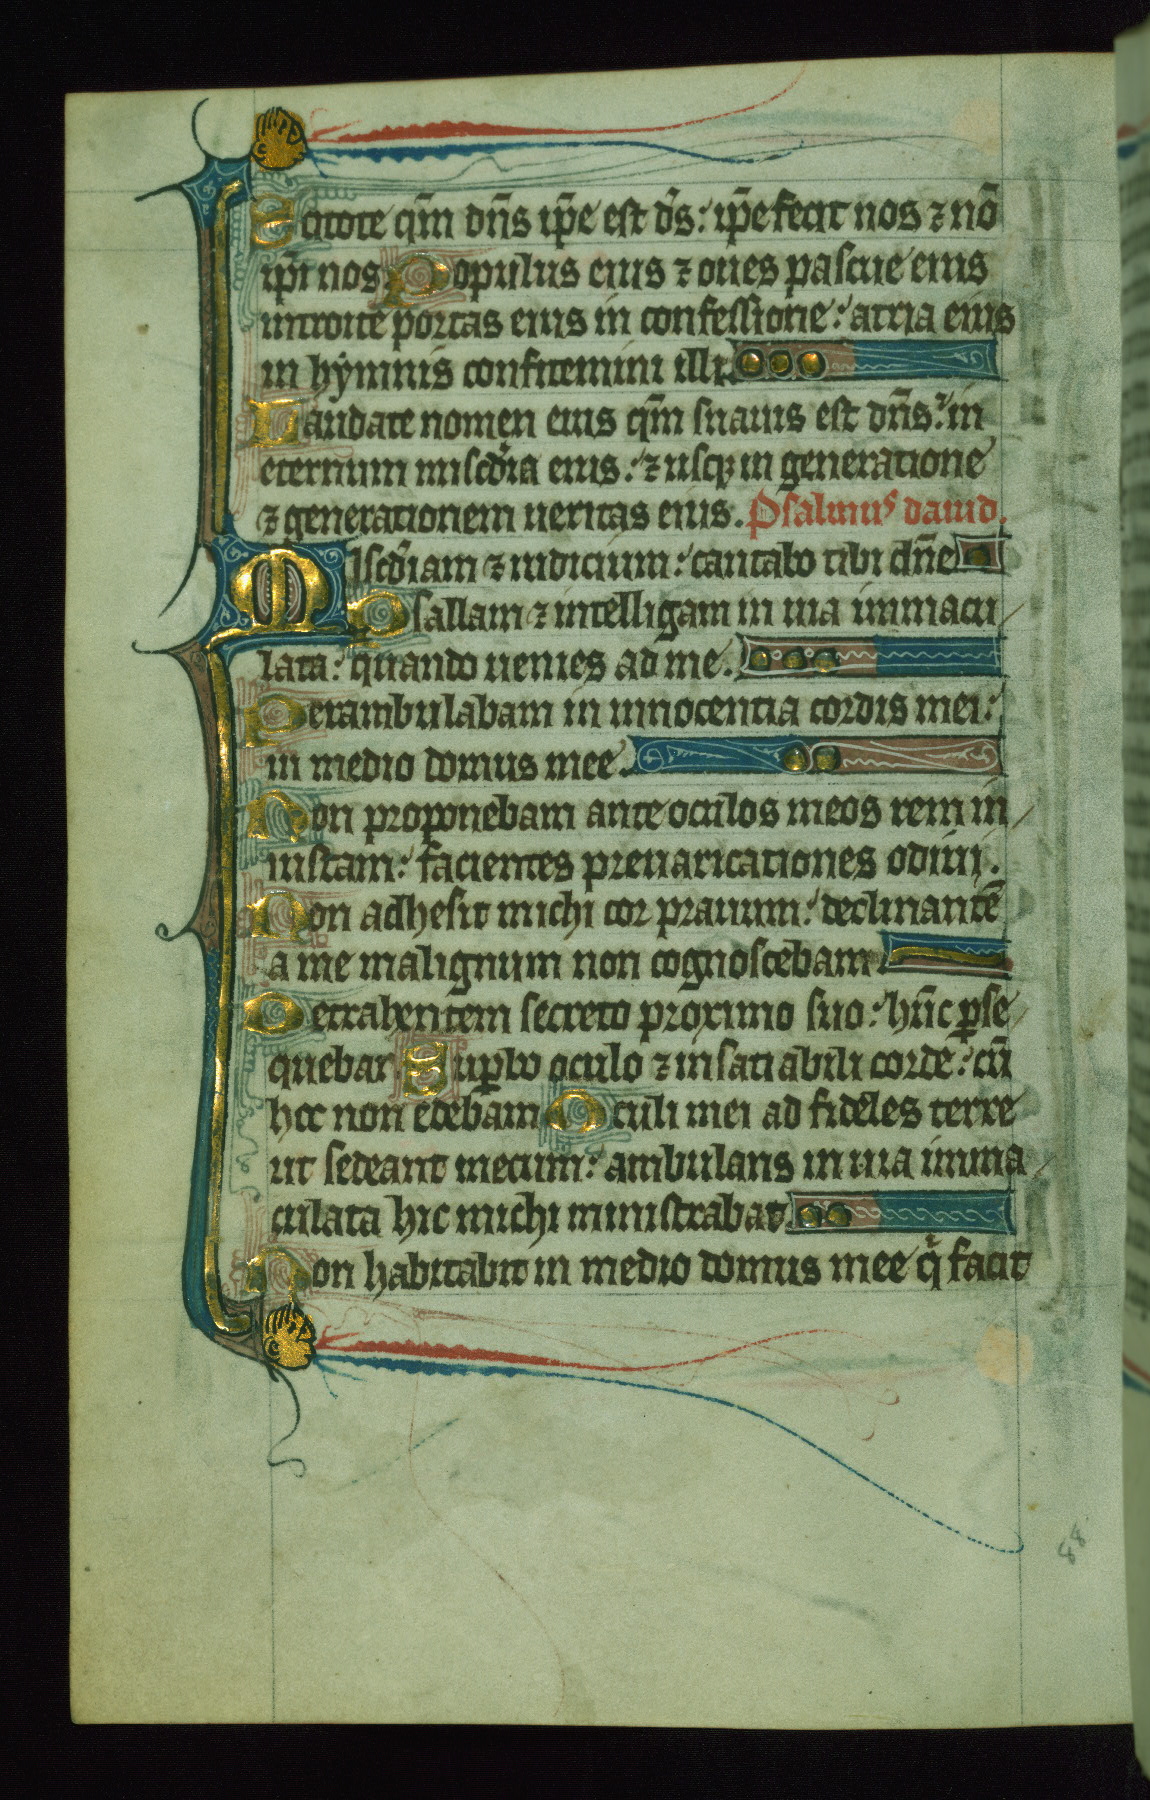 Scitote qm̄ dn̄s ip̄e est d̄s: ip̄e fecit nos ⁊ nō
ip̄i nos Populus eius ⁊ oues pascue eius
introite portas eius in confessione: atria eius
in hẏmnis confitemini illi.
Laudate nomen eius qm̄ suauis est dn̄s: in
eternum miscd̄ia eius: ⁊ usqꝫ in generatione
⁊ generationem ueritas eius. Psalmus dauid.
Miscd̄iam ⁊ iudicium: cantabo tibi dn̄e
Psallam ⁊ intelligam in uia immacu
lata: quando uenies ad me.
Perambulabam in innocentia cordis mei:
in medio domus mee.
Non proponebam ante oculos meos rem in
iustam: facientes preuaricationes odiui.
Non adhesit michi cor prauum: declinantē
a me malignum non cognoscebam
Detrahentem secreto proximo suo: hūc ꝑse
quebar Suꝑbo oculo ⁊ insatiabili corde: cū
hoc non edebam Oculi mei ad fideles terre
ut sedeant mecum: ambulans in uia imma
culata hic michi ministrabat.
Non habitabit in medio domus mee q̇ facit
88